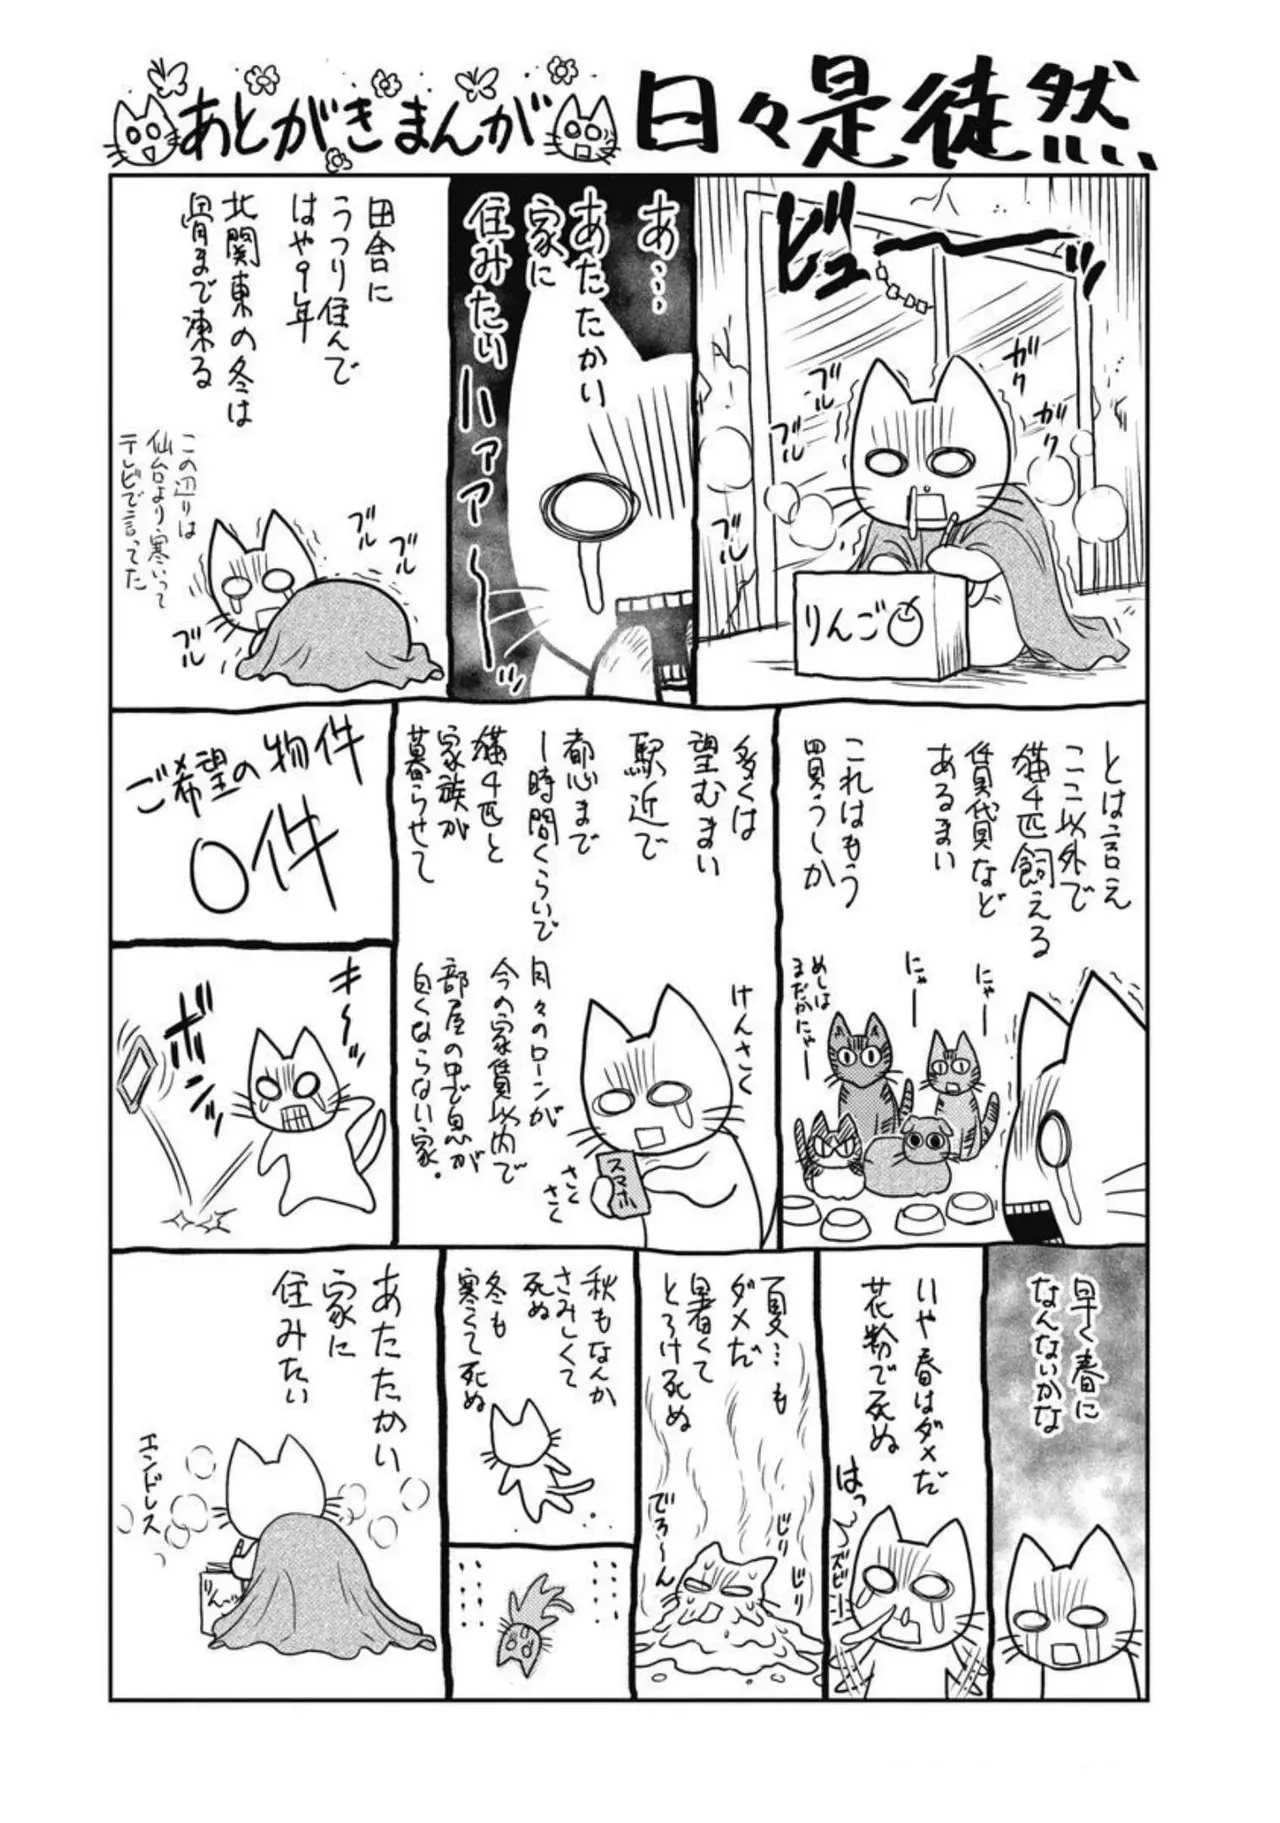 あとがきまんが
日々是徒然
ビュー
ッ
ガク
ガク
ブル
ブル
ブル
ブル
ブル
ブル
りんご
あ…
あたたかい
家に
住みたい
ハァァ〜〜ッ
田舎に
うつり住んで
はや9年
北関東の冬は
骨まで凍る
この辺りは
仙台より寒いって
テレビで言ってた
ブル
ブル
ブル
ブル
とは言え
ここ以外で
猫4匹飼える
賃貸など
あるまい
これはもう
買うしか
にゃー
にゃー
めしは
まだかにゃー
多くは
望むまい
駅近で
都心まで
1時間くらいで
猫4匹と
家族が
暮らせて
月々のローンが
今の家賃以内で
部屋の中で息が
白くならない家.
けんさく
スマホ
さく
さく
ご希望の物件
0件
キ〜〜ッ
ボンッ
早く春に
なんないかな
いや春はダメだ
花粉で死ぬ
はっ
ズビーー
夏…も
ダメだ
暑くて
とろけ死ぬ
じり
じり
でろ〜〜ん
秋もなんか
さみしくて
死ぬ
冬も
寒くて死ぬ
あたたかい
家に
住みたい
エンドレス
りん